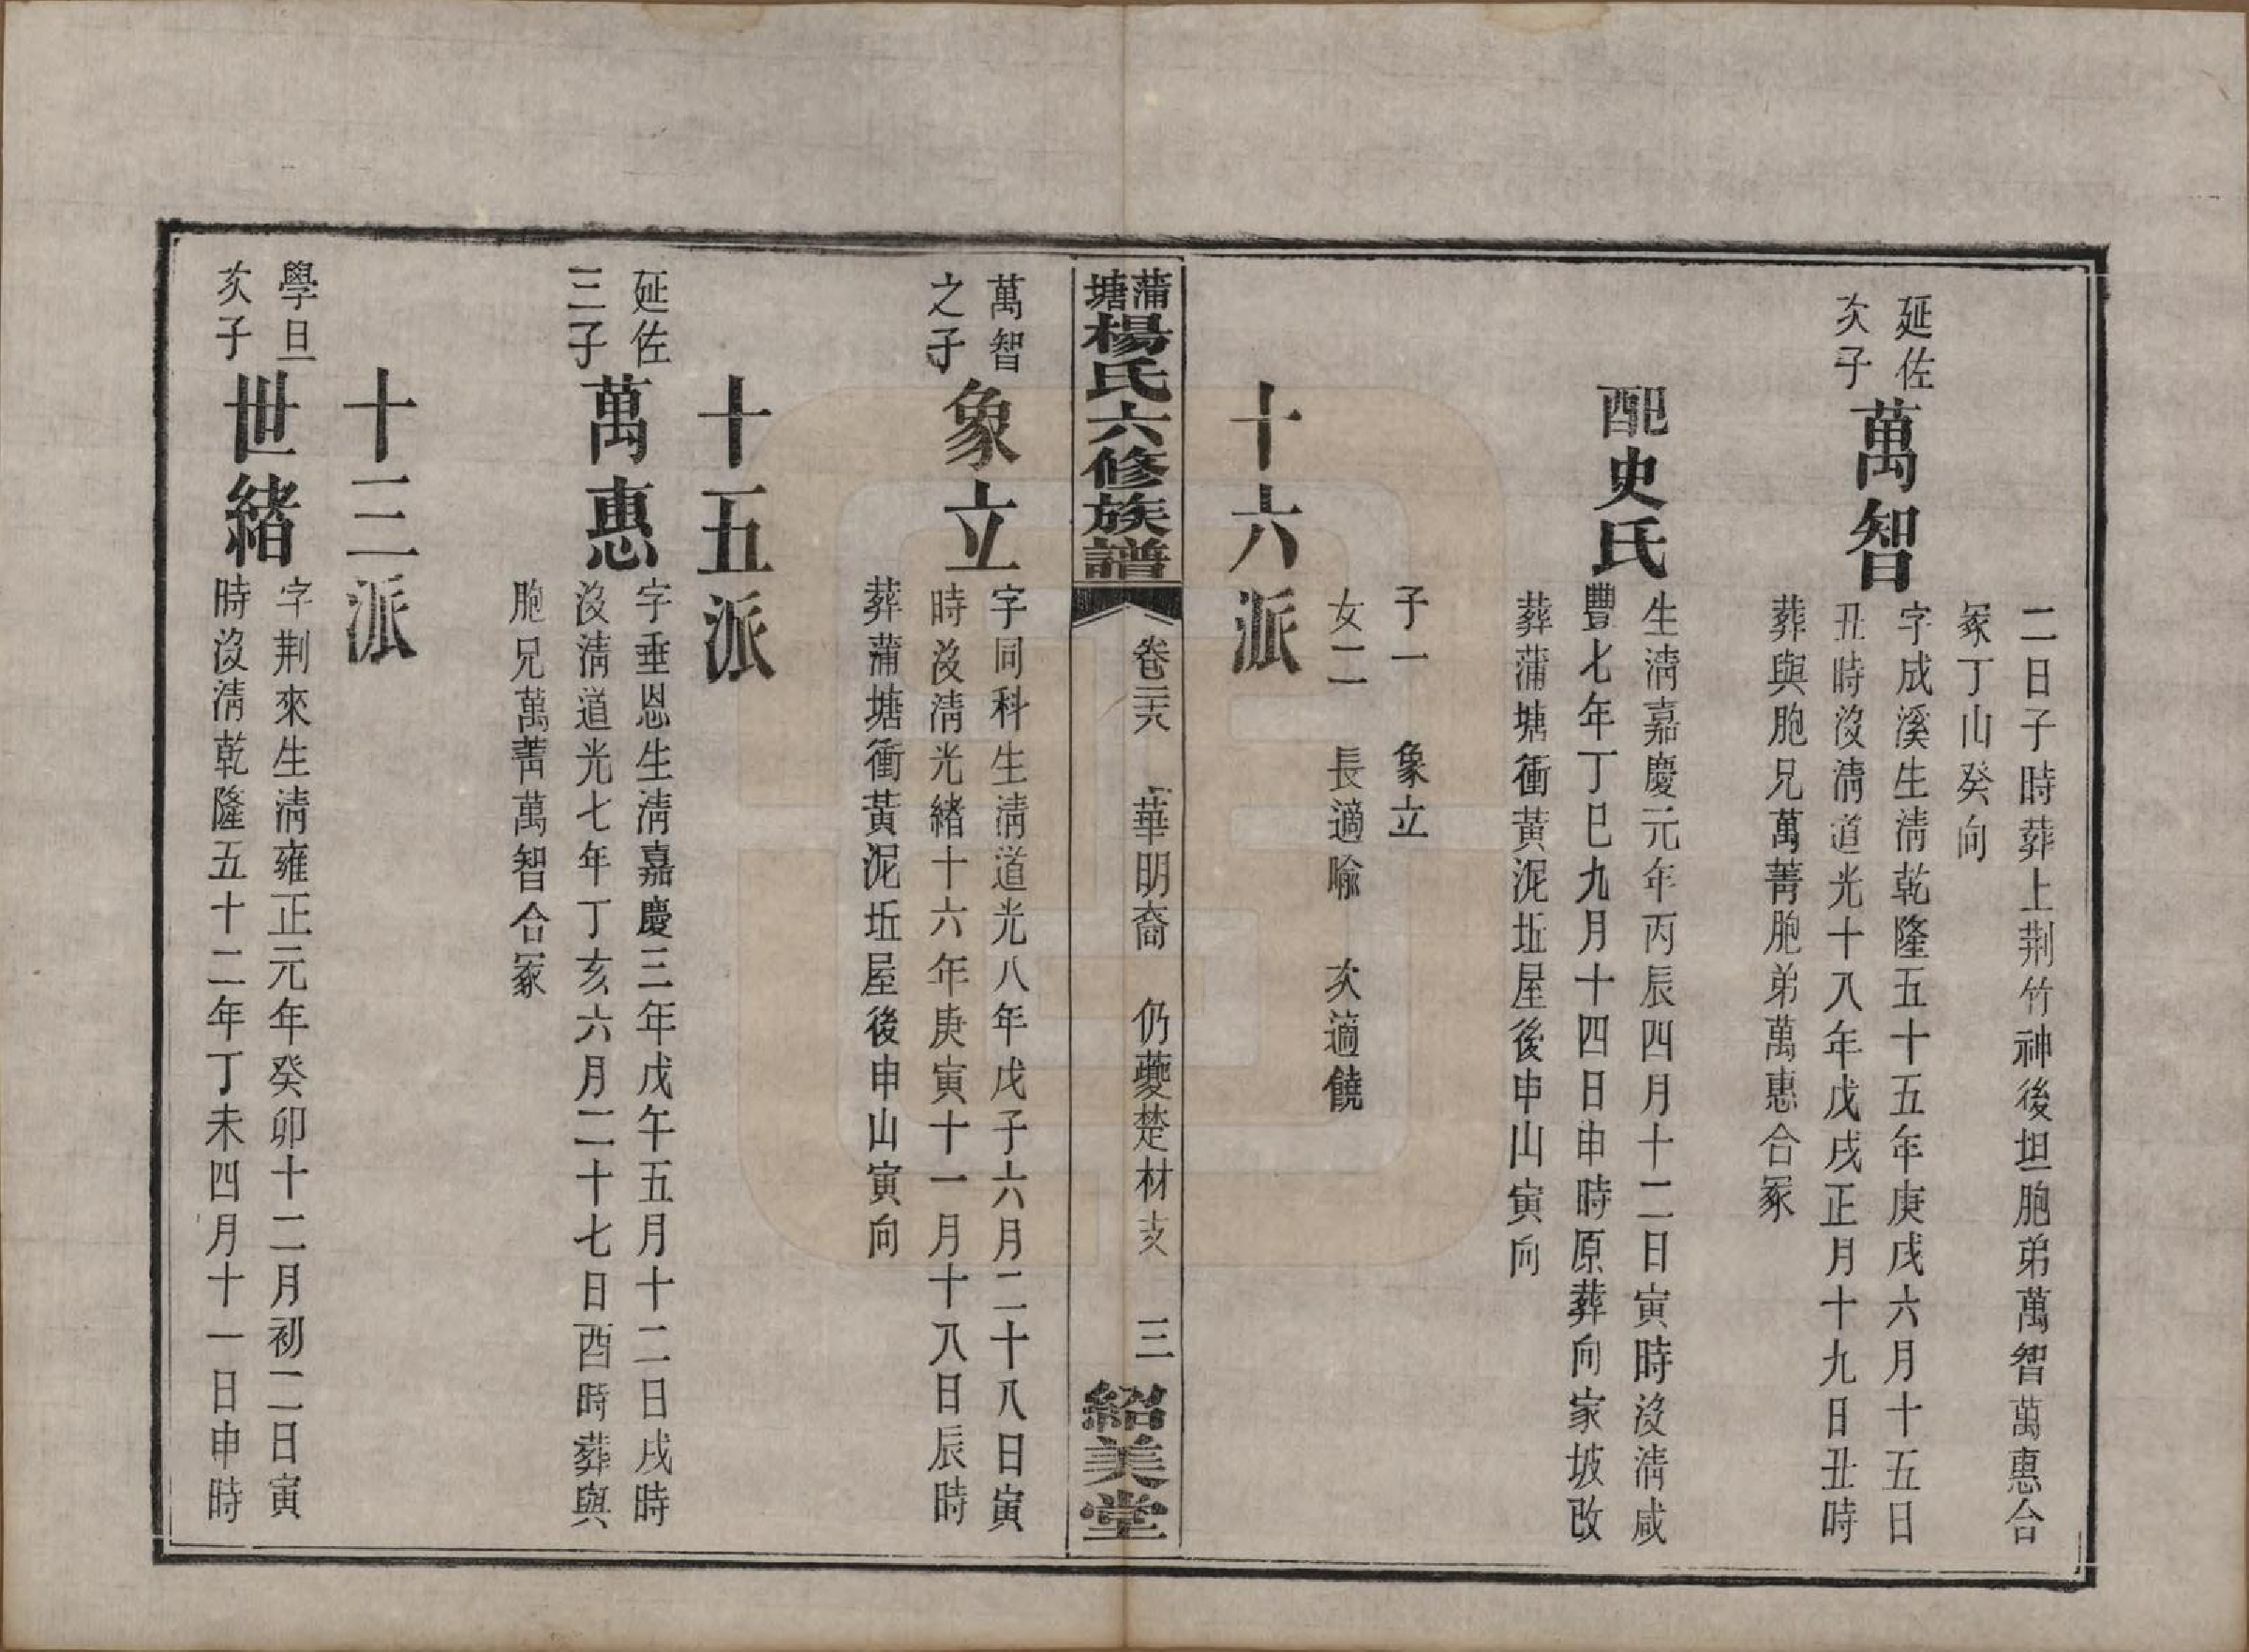 二日子時葬上荆竹神後坦胞弟萬智萬惠合
冢丁山癸向
延佐
次子
萬智
字成溪生清乾隆五十五年庚戌六月十五日
丑時沒清道光十八年戊戌正月十九日丑時
葬與胞兄萬菁胞弟萬惠合冢
配史氏
生清嘉慶元年丙辰四月十二日寅時沒清咸
豐七年丁巳九月十四日申時原葬向家坡改
葬蒲塘衝黃泥坵屋後申山寅向
子一 象立
女二 長適喻 次適饒
十六派
蒲塘楊氏六修族譜
卷三十六 華明裔 仍夔楚材支 三
紹美堂
萬智
之子
象立
字同科生清道光八年戊子六月二十八日寅
時沒清光緒十六年庚寅十一月十八日辰時
葬蒲塘衝黃泥坵屋後申山寅向
十五派
延佐
三子
萬惠
字垂恩生清嘉慶三年戊午五月十二日戌時
沒清道光七年丁亥六月二十七日酉時葬與
胞兄萬菁萬智合冢
十三派
學旦
次子
世緒
字荆來生清雍正元年癸卯十二月初二日寅
時沒清乾隆五十二年丁未四月十一日申時